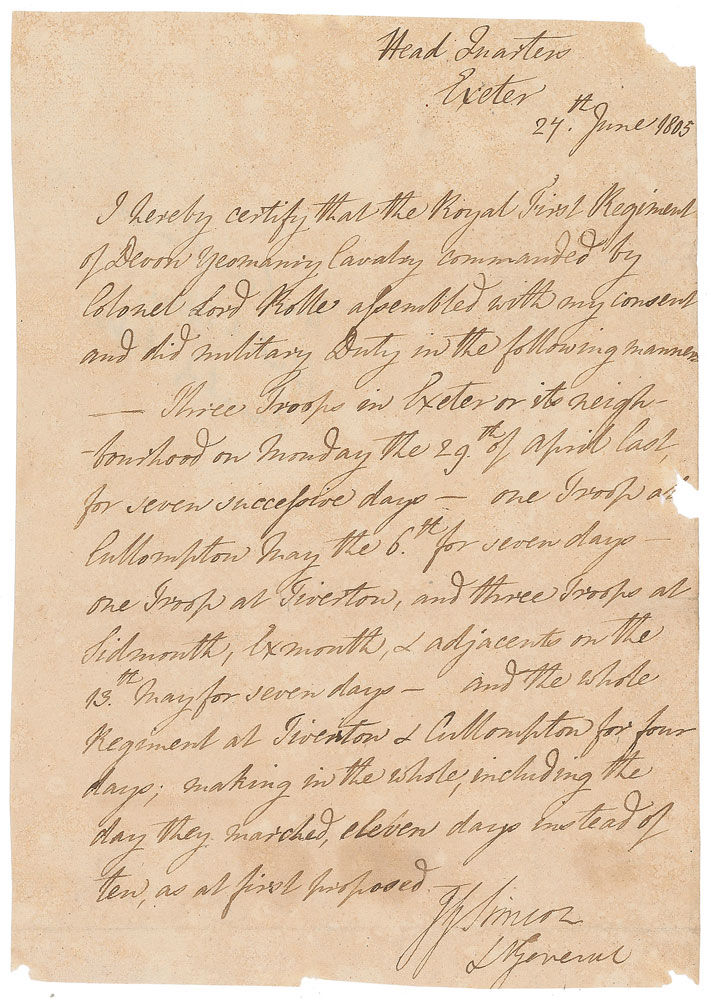 Head Quarters
Exeter
27.th June 1805
I hereby certify that the Royal First Regiment
of Devon Yeomanry Cavalry commanded by
Colonel Lord Rolle assembled with my consent
and did military Duty in the following manner
— Three Troops in Exeter or its neigh-
-bourhood on Monday the 29.th of April last,
for seven successive days — one Troop at
Cullompton May the 6.th for seven days —
one Troop at Tiverton, and three Troops at
Sidmouth, Exmouth, & adjacents on the
13.th May for seven days — and the whole
Regiment at Tiverton & Cullompton for four
days; making in the whole, including the
day they marched, eleven days instead of
ten, as at first proposed.
JG Simcoe
Lt General